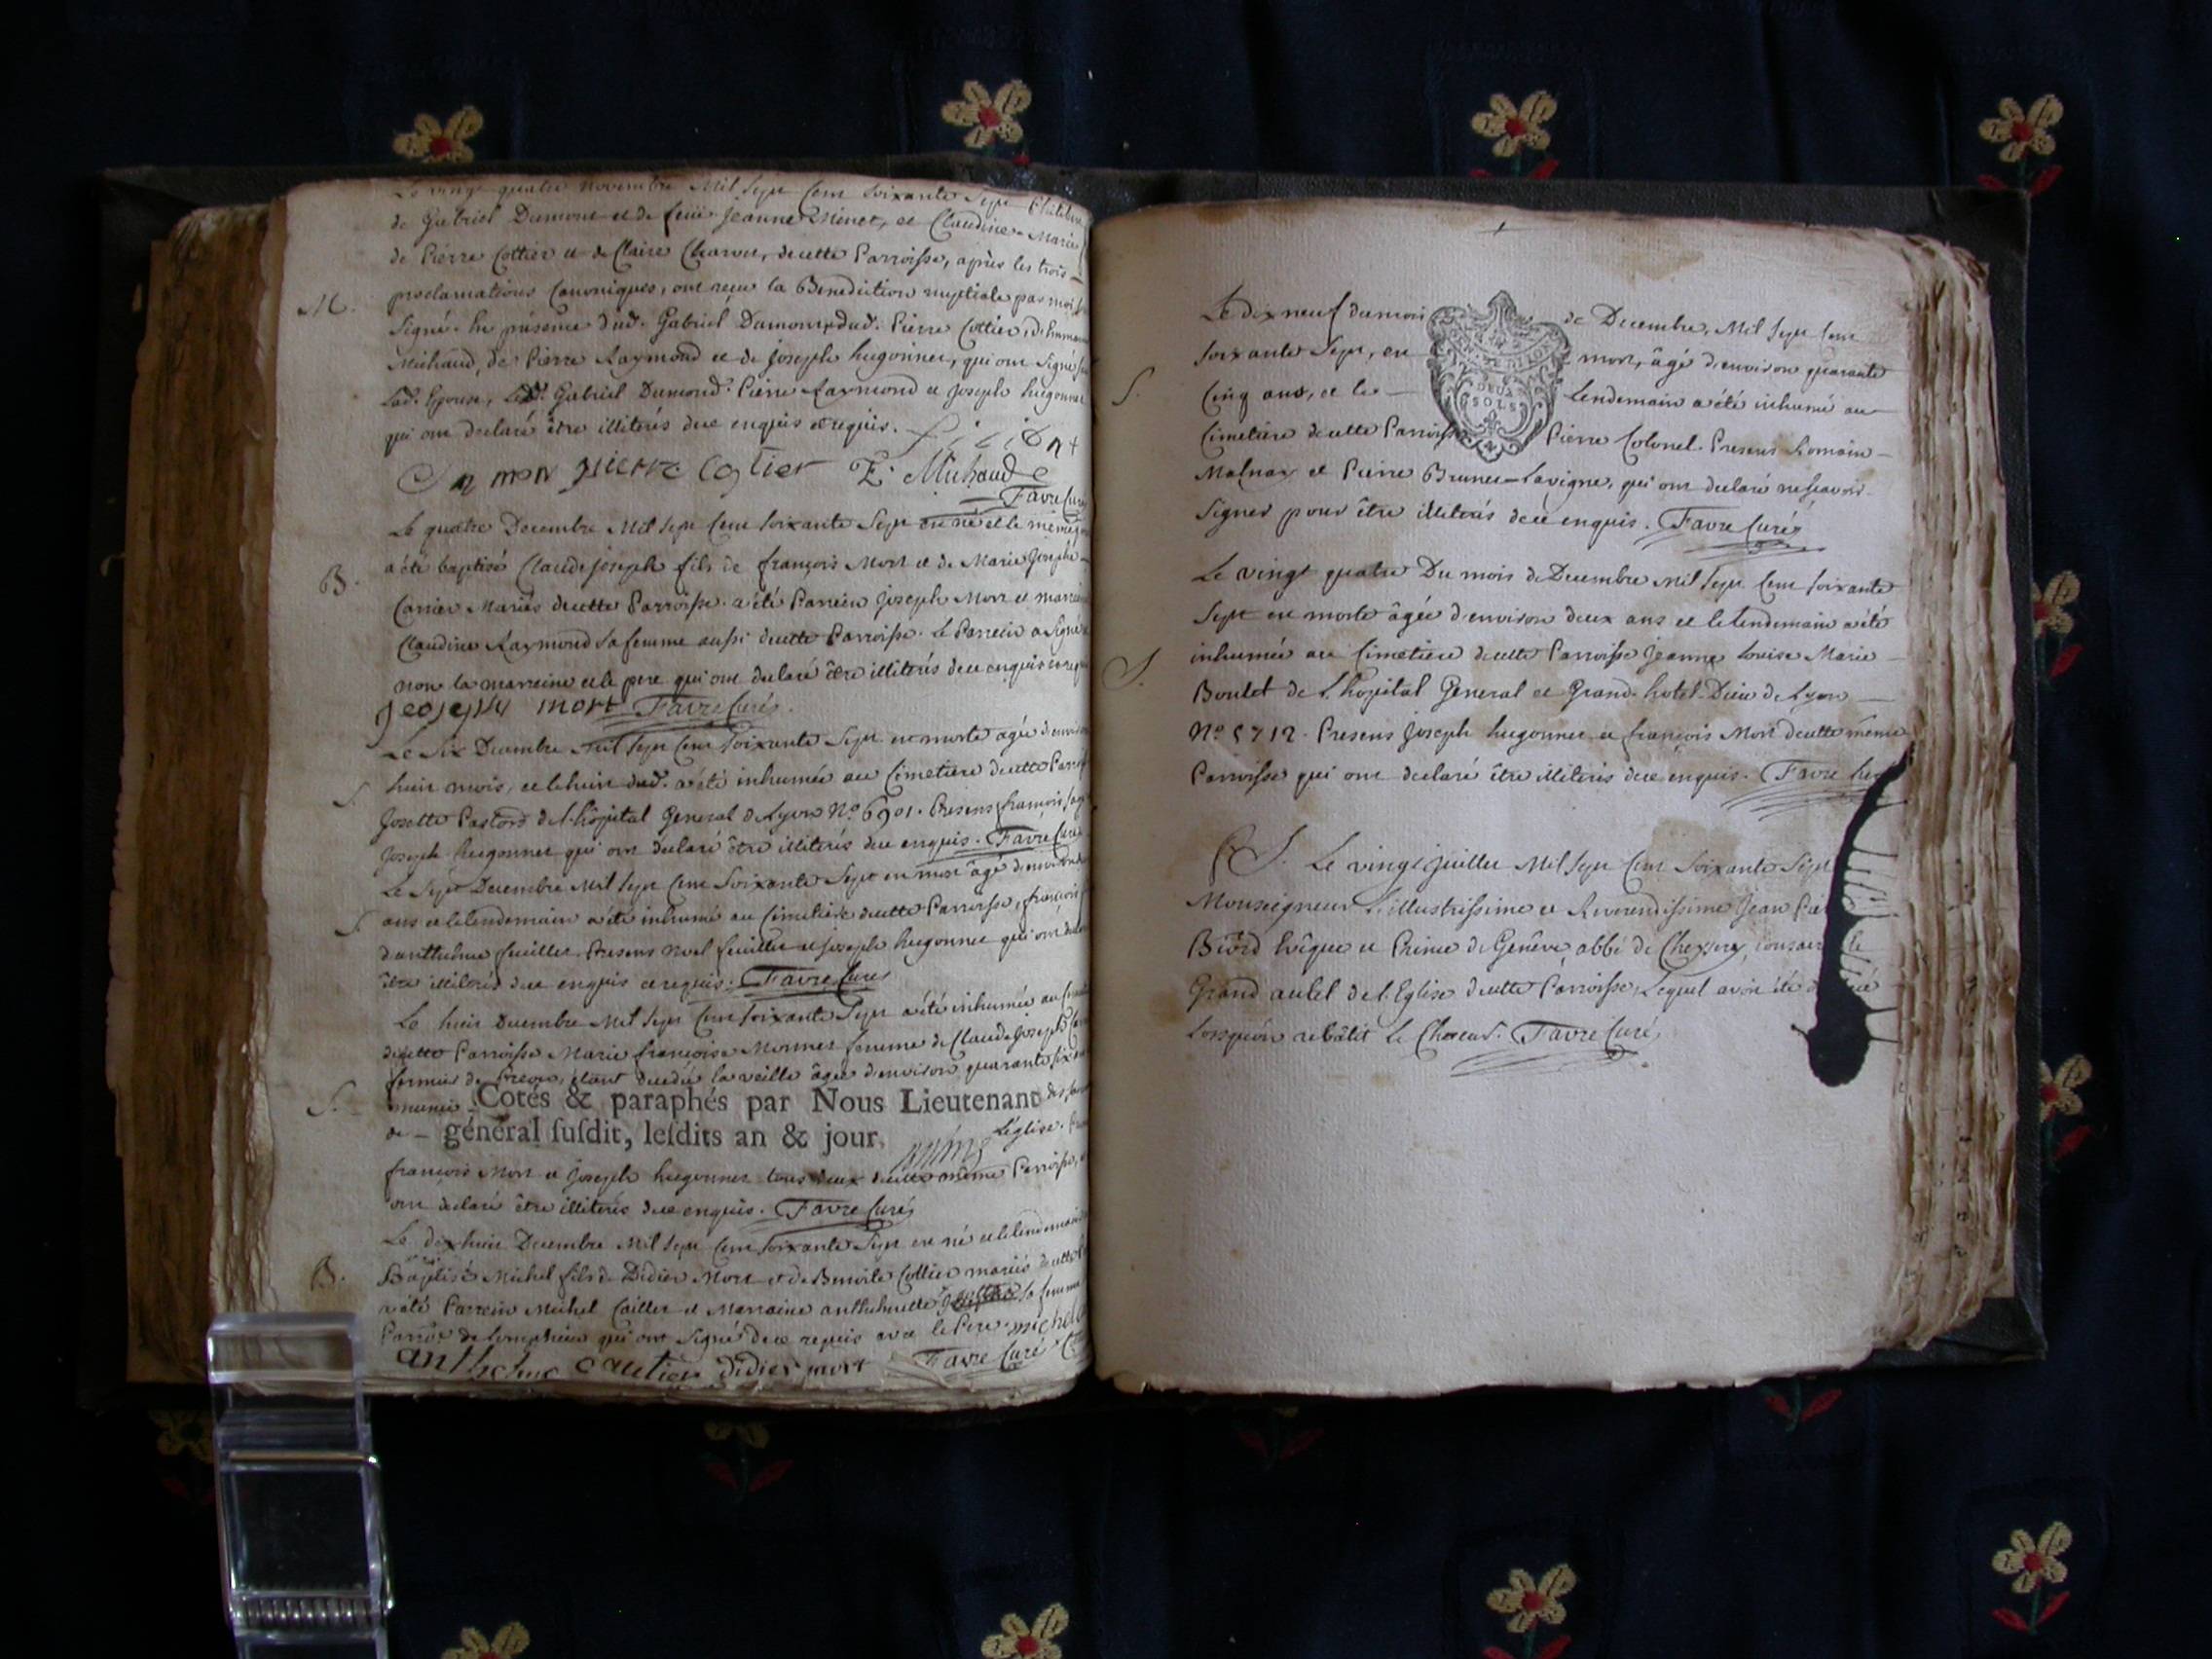 Le vingt quatre novembre Mil Sept Cent soixante Sept Philibert
de Gabriel Dumont et de feüe Jeanne Minet, et Claudine-Marie
de Pierre Cottier et de Claire Charvet, de cette Parroisse, après les trois
M. proclamations Canoniques, ont reçu la Benediction nuptiale par moi
Signé. En présence dud. Gabriel Dumont, dud. Pierre Cottier, d'
Michaud, de Pierre Raymond et de joseph hugonnet, qui ont Signé
Lad. Epouse, Led. Gabriel Dumond. Pierre Raymond et Joseph hugonnet
qui ont declaré être illiterés de ce enquis et requis.
Du mon pierre Cotier E. Michaud
Favre Curé
Le quatre Decembre Mil Sept Cent soixante Sept est né et le même
B. a été baptisé Claude joseph fils de françois Mort et de Marie Josephe
Carrier Mariés de cette Parroisse. a été Parrein Joseph Mort et marreine
Claudine Raymond sa femme aussi de cette Parroisse. Le Parrein a signé
non la marreine et le pere qui ont declaré être illiterés de ce enquis
Jeoseph mort Favre Curé.
Le Six Decembre Mil Sept Cent soixante Sept est morte agée d'environ
S. huit mois, et le huit dud. a été inhumée au Cimetiere de cette Parroisse
Josette Pastord de l'hôpital General de Lyon No 6901. Presens françois
Joseph hugonnet qui ont déclaré être illiterés de ce enquis. Favre Curé
Le Sept Decembre Mil Sept Cent Soixante Sept est mort âgé d'environ
S. ans et le lendemain a été inhumé au Cimetiere de cette Parroisse, françois
d'anthelme feuillet. Presens Noel feuillet et joseph hugonnet qui ont declaré
être illiterés de ce enquis et requis. Favre Curé
Le huit Decembre Mil Sept Cent soixante Sept a été inhumée au
de cette Parroisse Marie françoise Monnet femme de Claude Joseph
fermier de etant decedée la veille âgée d'environ quarante six
S. munie Cotés & paraphés par Nous Lieutenant des
de - général ſuſdit, leſdits an & jour. L'église.
françois Mort et Joseph hugonnet tous deux de cette même Parroisse,
ont declaré être illiterés de ce enquis. Favre Curé
Le dix huit Decembre Mil Sept Cent soixante Sept est né et le lendemain
B. Baptisé Michel fils de Didier Mort et de Benoite Cottier mariés de cette
a été Parrein Michel Caillet et Marraine anthelmette sa femme
Parroe. de Lompnieu qui ont Signé de ce requis avec le Pere. michel
anthelme cautier didier mort Favre Curé
Le dix neuf du mois de Decembre, Mil Sept Cent
soixante Sept, est mort, âgé d'environ quarante
S. Cinq ans, et le - lendemain a été inhumé au
Cimetiere de cette Parroisse Pierre Colonel. Presens Romain
Malnay et Pierre Brunet-Lavigne, qui ont declaré ne sçavoir
Signer pour être illiterés de ce enquis. Favre Curé
DEUX
SOLS
Le vingt quatre Du mois de Decembre Mil Sept Cent soixante
Sept est morte âgée d'environ deux ans et le lendemain a été
S. inhumée au Cimetiere de cette Parroisse Jeanne Louise Marie
Boulet de L'hopital General et Grand-hotel-Dieu de Lyon
No 5712. Presens Joseph hugonnet et françois Mort de cette même
Parroisse qui ont declaré être illiterés de ce enquis. Favre
Le vingt juillet Mil Sept Cent Soixante Sept
Monseigneur L'illustrissime et Reverendissime Jean
Biord Evêque et Prince de Genêve, abbé de Chezery, le
Grand autel de l'Eglise de cette Parroisse, Lequel avoit été
Lorsqu'on rebâtit Le Choeur. Favre Curé